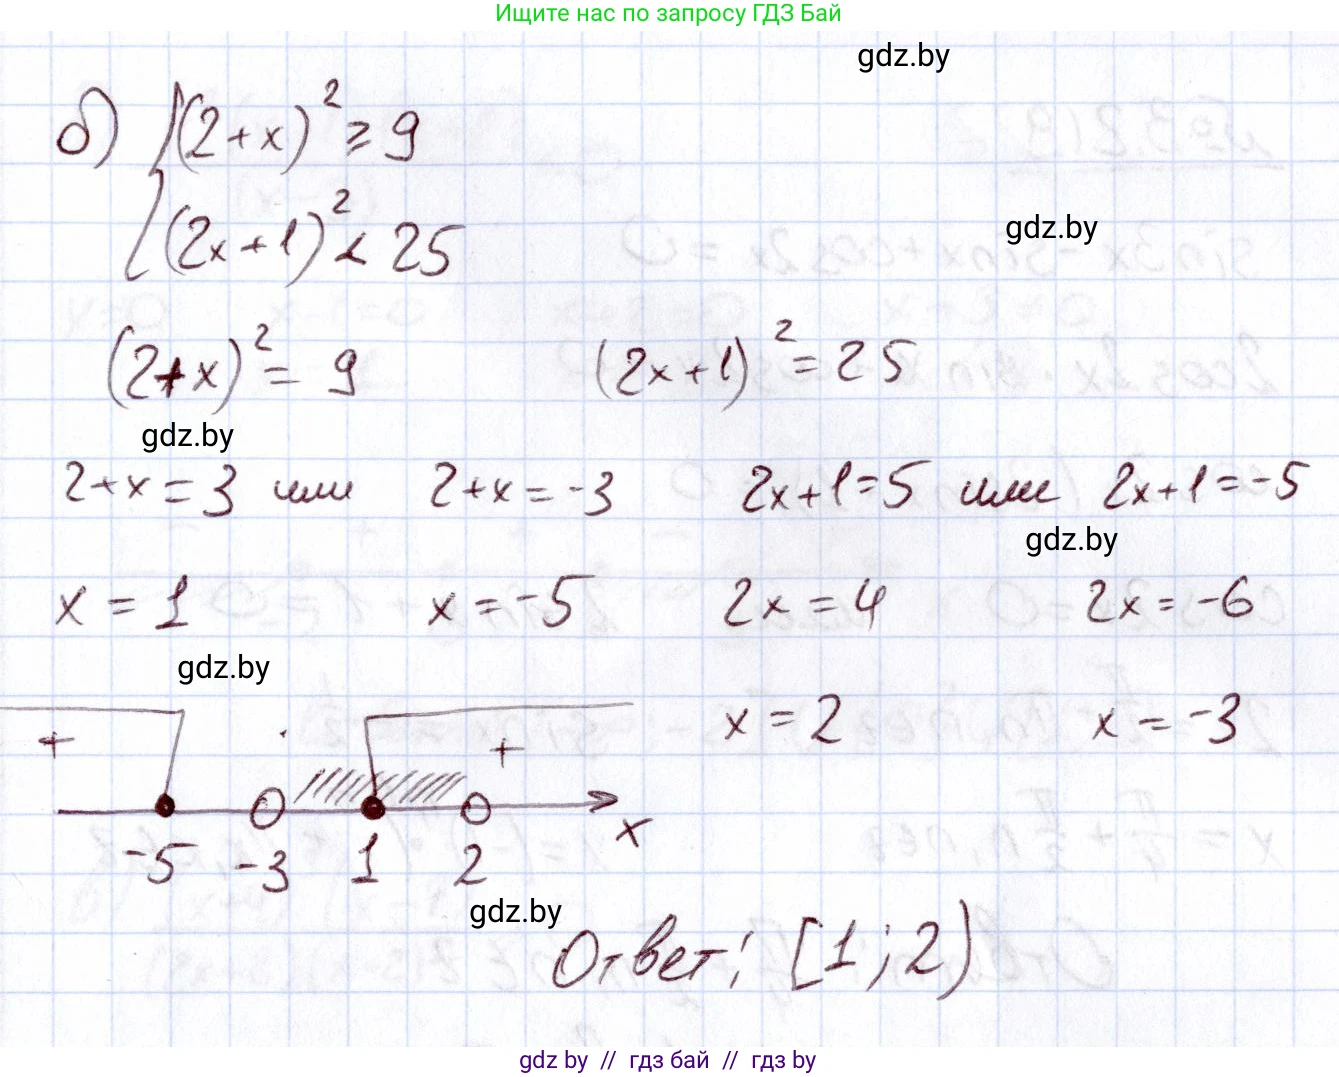 Ищите нас по запросу ГДЗ Бай
gdz.by
б) { (2+x)² ≥ 9
(2x+1)² < 25
gdz.by
(2+x)² = 9 (2x+1)² = 25
gdz.by
2+x=3 или 2+x=-3 2x+1=5 или 2x+1=-5
gdz.by
x = 1 x = -5 2x = 4 2x = -6
gdz.by
x = 2 x = -3
+ +
-5 -3 1 2 x
gdz.by
Ответ: [1; 2)
gdz by // гдз бай // гдз by